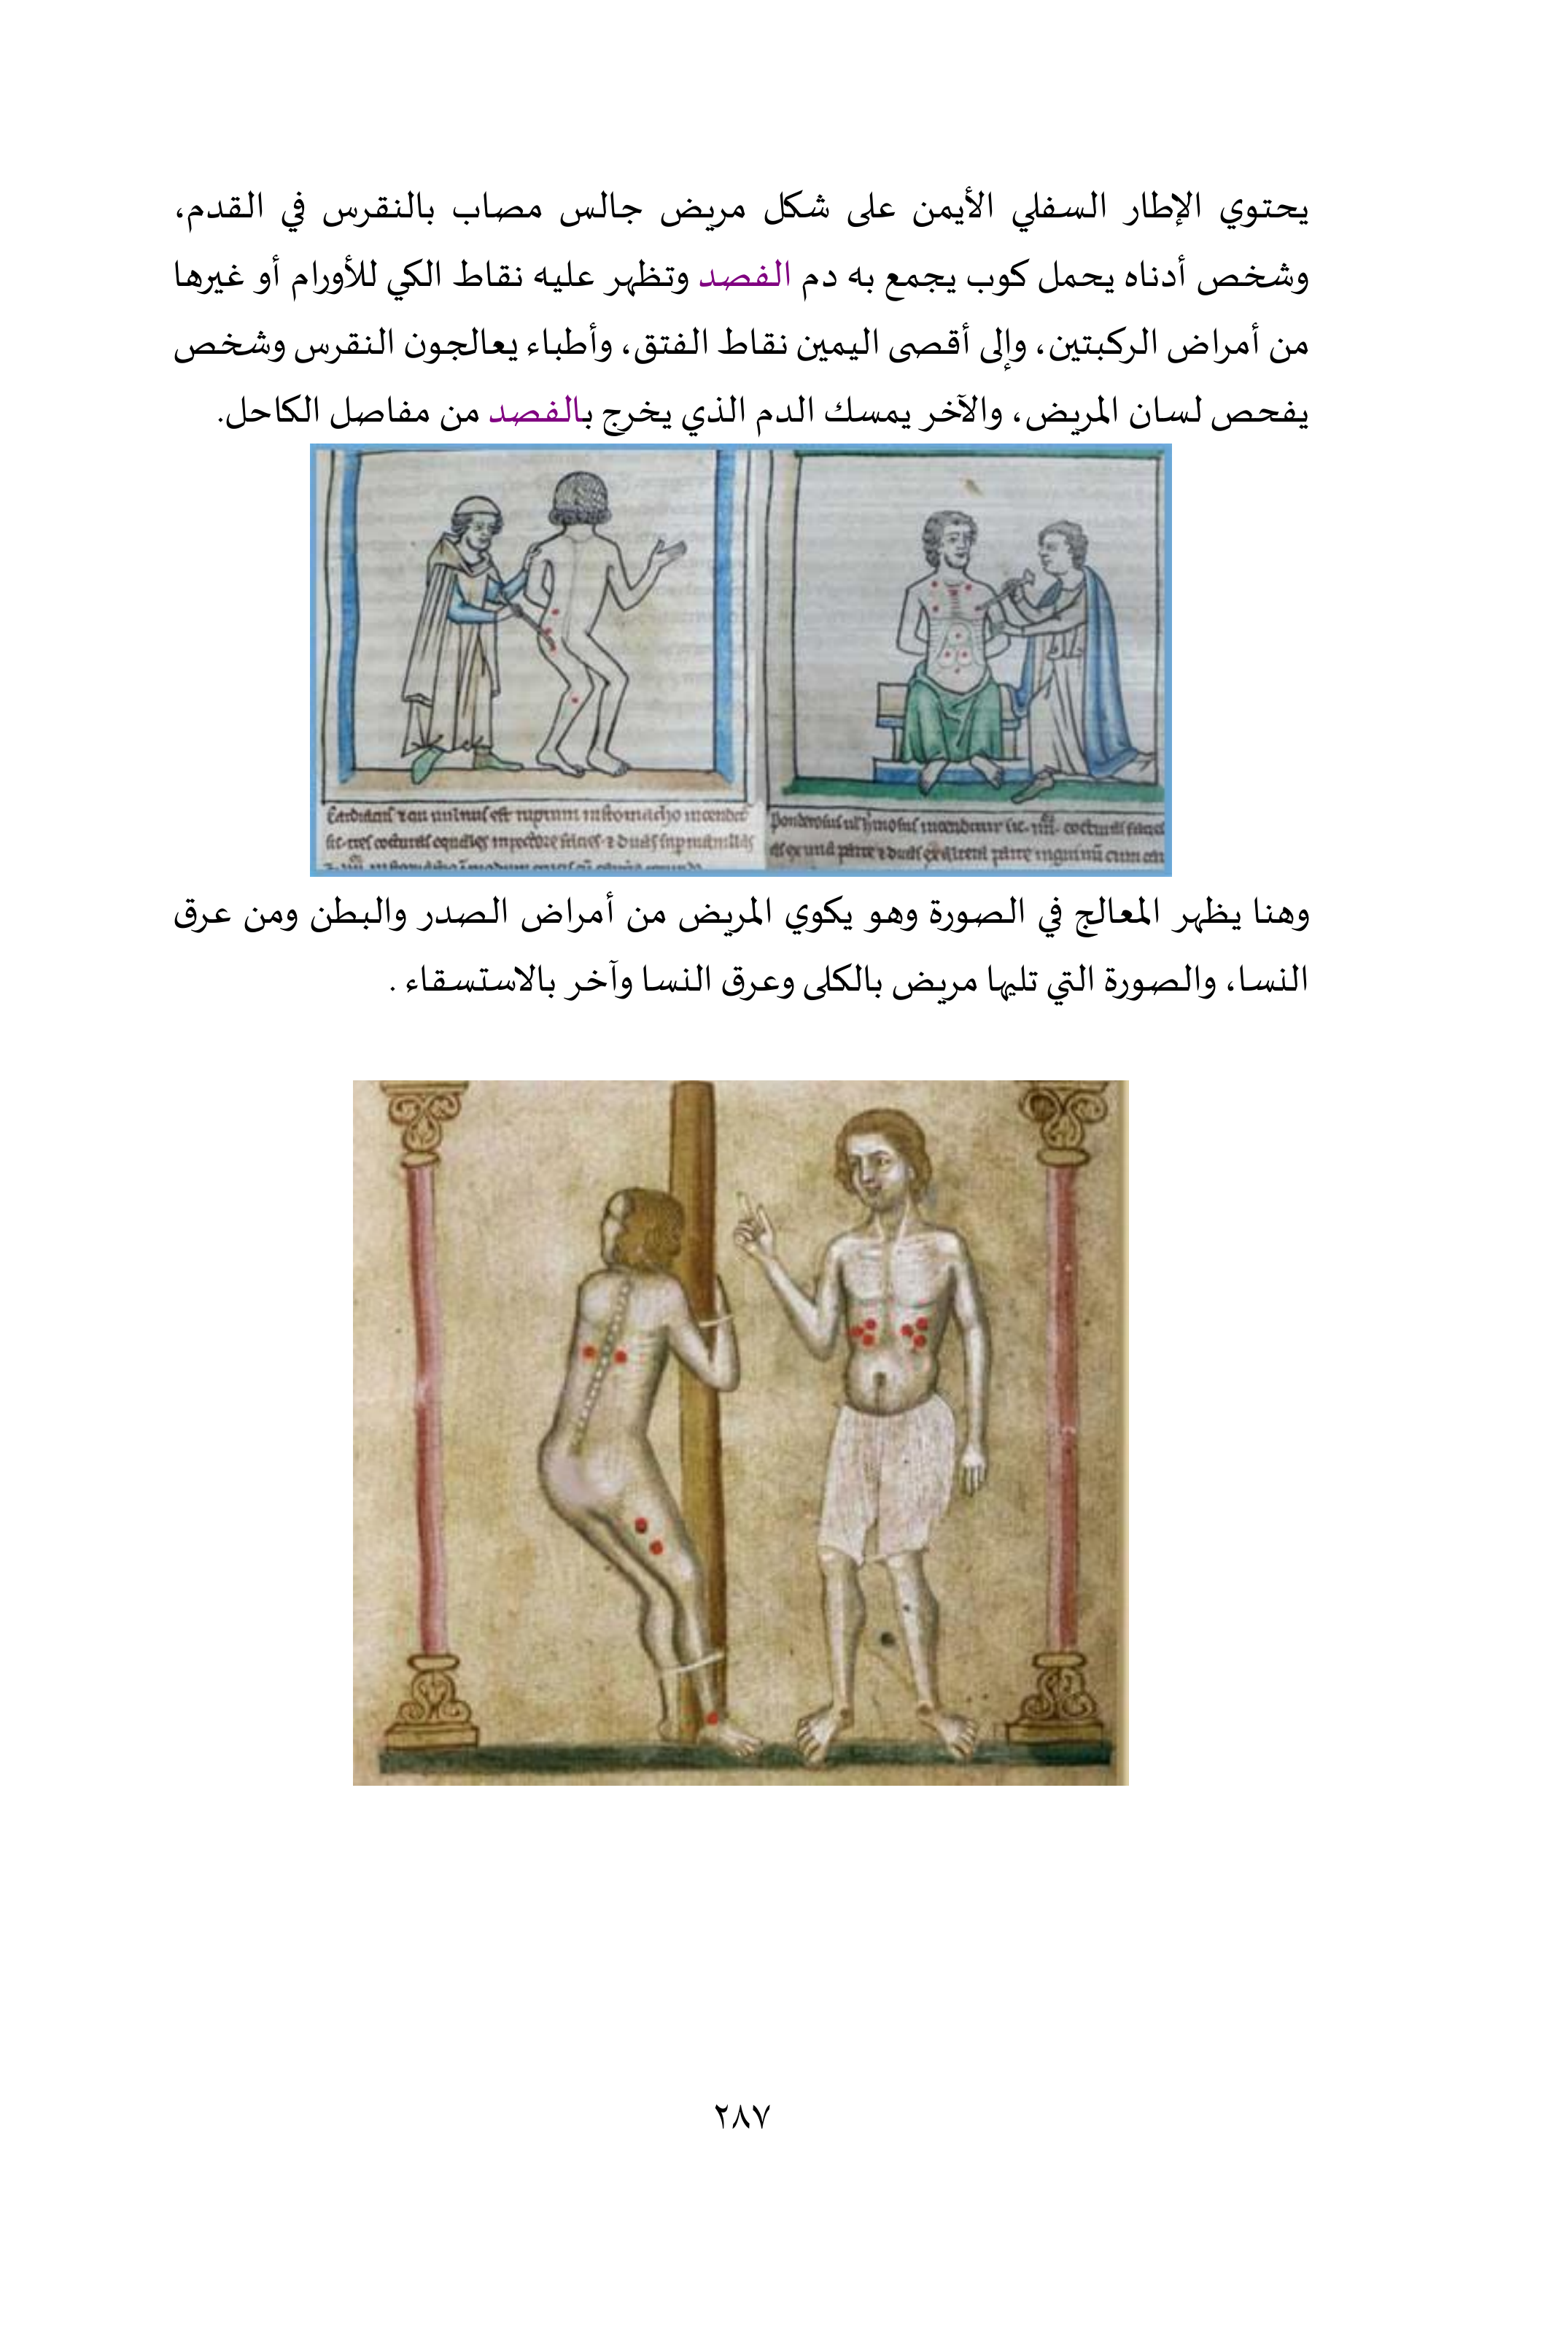 يحتوي الإطار السفلي الأيمن على شكل مريض جالس مصاب بالنقرس في القدم،
وشخص أدناه يحمل كوب يجمع به دم الفصد وتظهر عليه نقاط الكي للأورام أو غيرها
من أمراض الركبتين، وإلى أقصى اليمين نقاط الفتق، وأطباء يعالجون النقرس وشخص
يفحص لسان المريض، والآخر يمسك الدم الذي يخرج بالفصد من مفاصل الكاحل.
وهنا يظهر المعالج في الصورة وهو يكوي المريض من أمراض الصدر والبطن ومن عرق
النسا، والصورة التي تليها مريض بالكلى وعرق النسا وآخر بالاستسقاء .
٢٨٧